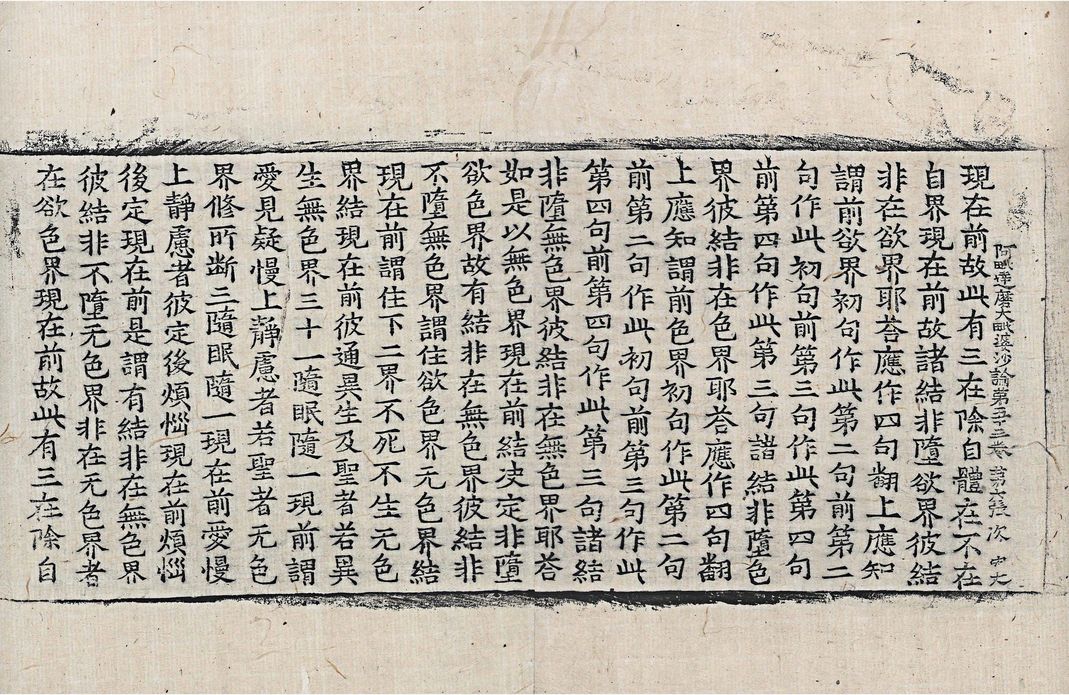 阿毗達磨大毗婆沙論第五十二卷 第六張 次 中大
現在前故此有三在除自體在不在
自界現在前故諸結非墮欲界彼結
非在欲界耶荅應作四句翻上應知
謂前欲界初句作此第二句前第二
句作此初句前第三句作此第四句
前第四句作此第三句諸結非墮色
界彼結非在色界耶荅應作四句翻
上應知謂前色界初句作此第二句
前第二句作此初句前第三句作此
第四句前第四句作此第三句諸結
非墮無色界彼結非在無色界耶荅
如是以無色界現在前結决定非墮
欲色界故有結非在無色界彼結非
不墮無色界謂住欲色界无色界結
現在前謂住下二界不死不生无色
界結現在前彼通異生及聖者若異
生無色界三十一隨眠隨一現前謂
愛見疑慢上靜慮者若聖者无色
界修所断三隨眠隨一現在前愛慢
上靜慮者彼定後煩惱現在前煩惱
後定現在前是謂有結非在無色界
彼結非不墮无色界非在无色界者
在欲色界現在前故此有三在除自